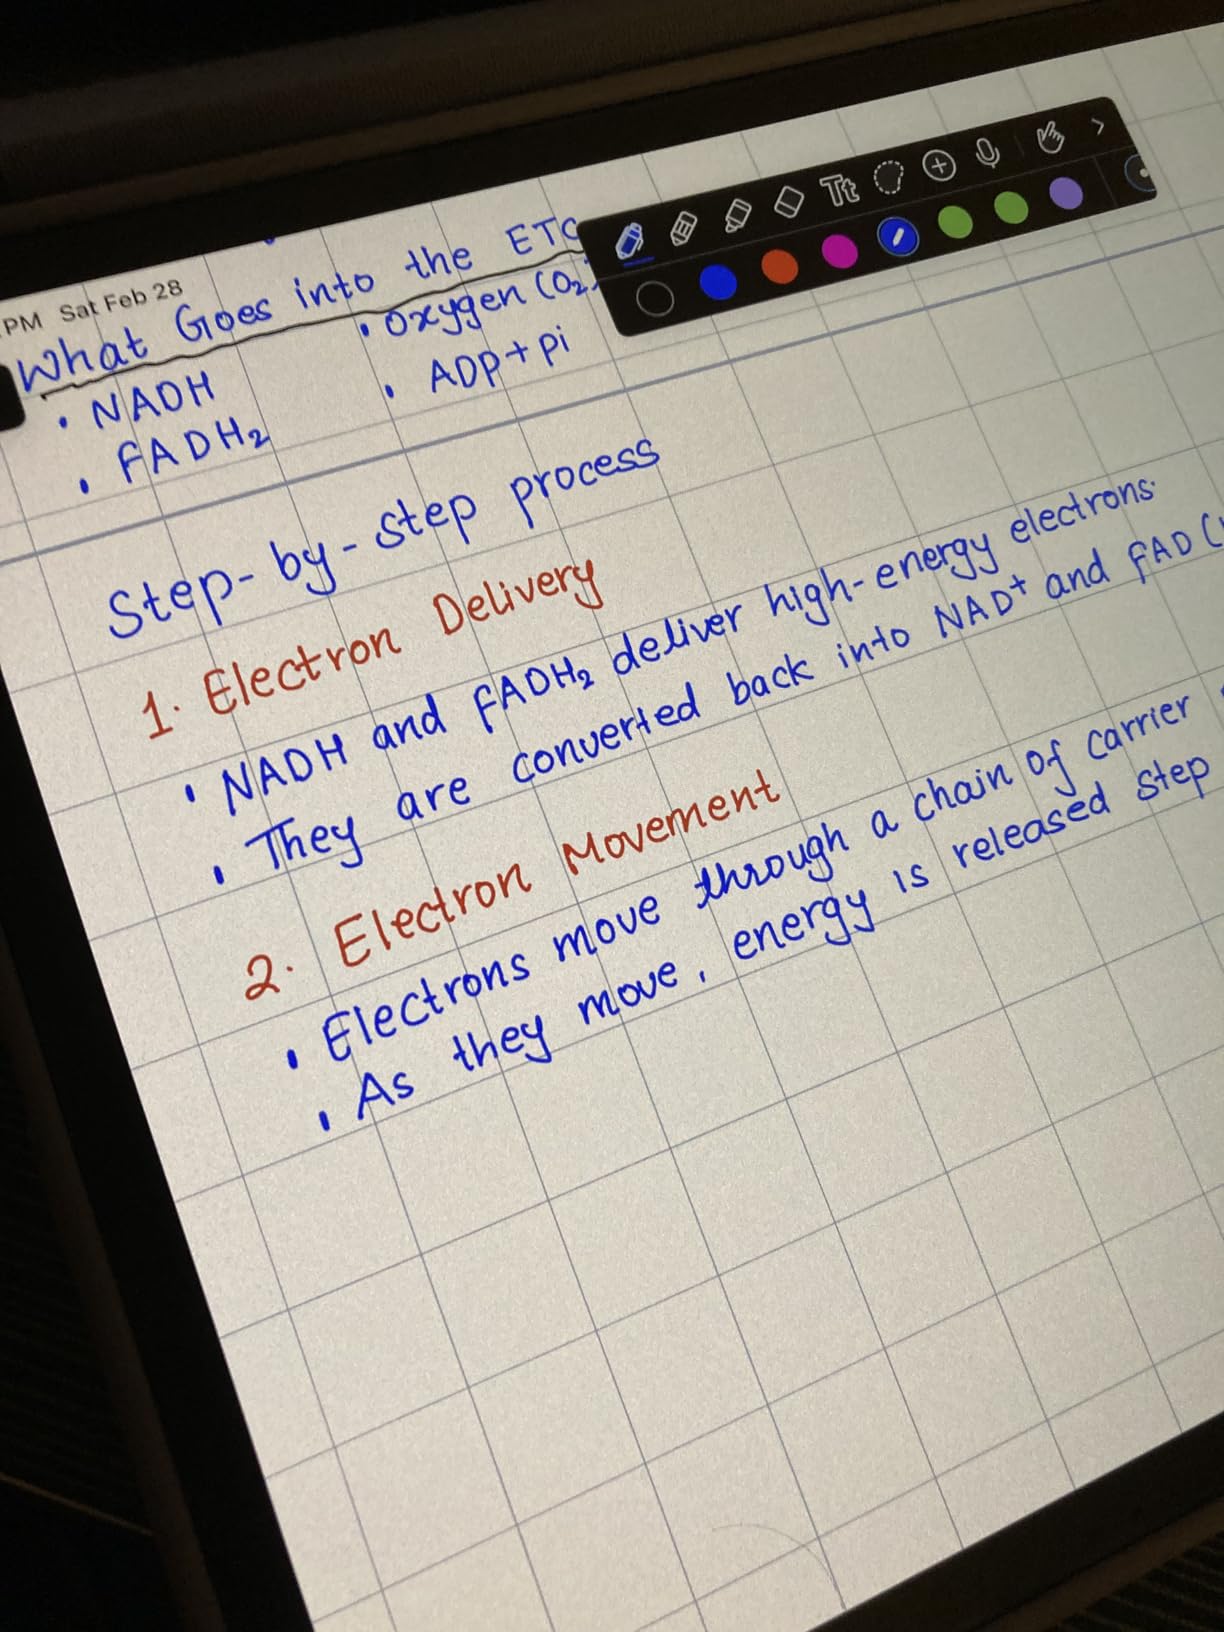 PM Sat Feb 28
What Goes into the ETC
• NADH
• FADH₂
• Oxygen (O₂)
• ADP + Pi
Tt
Step-by-step process
1. Electron Delivery
• NADH and FADH₂ deliver high-energy electrons.
• They are converted back into NAD⁺ and FAD (
2. Electron Movement
• Electrons move through a chain of carrier
• As they move, energy is released step